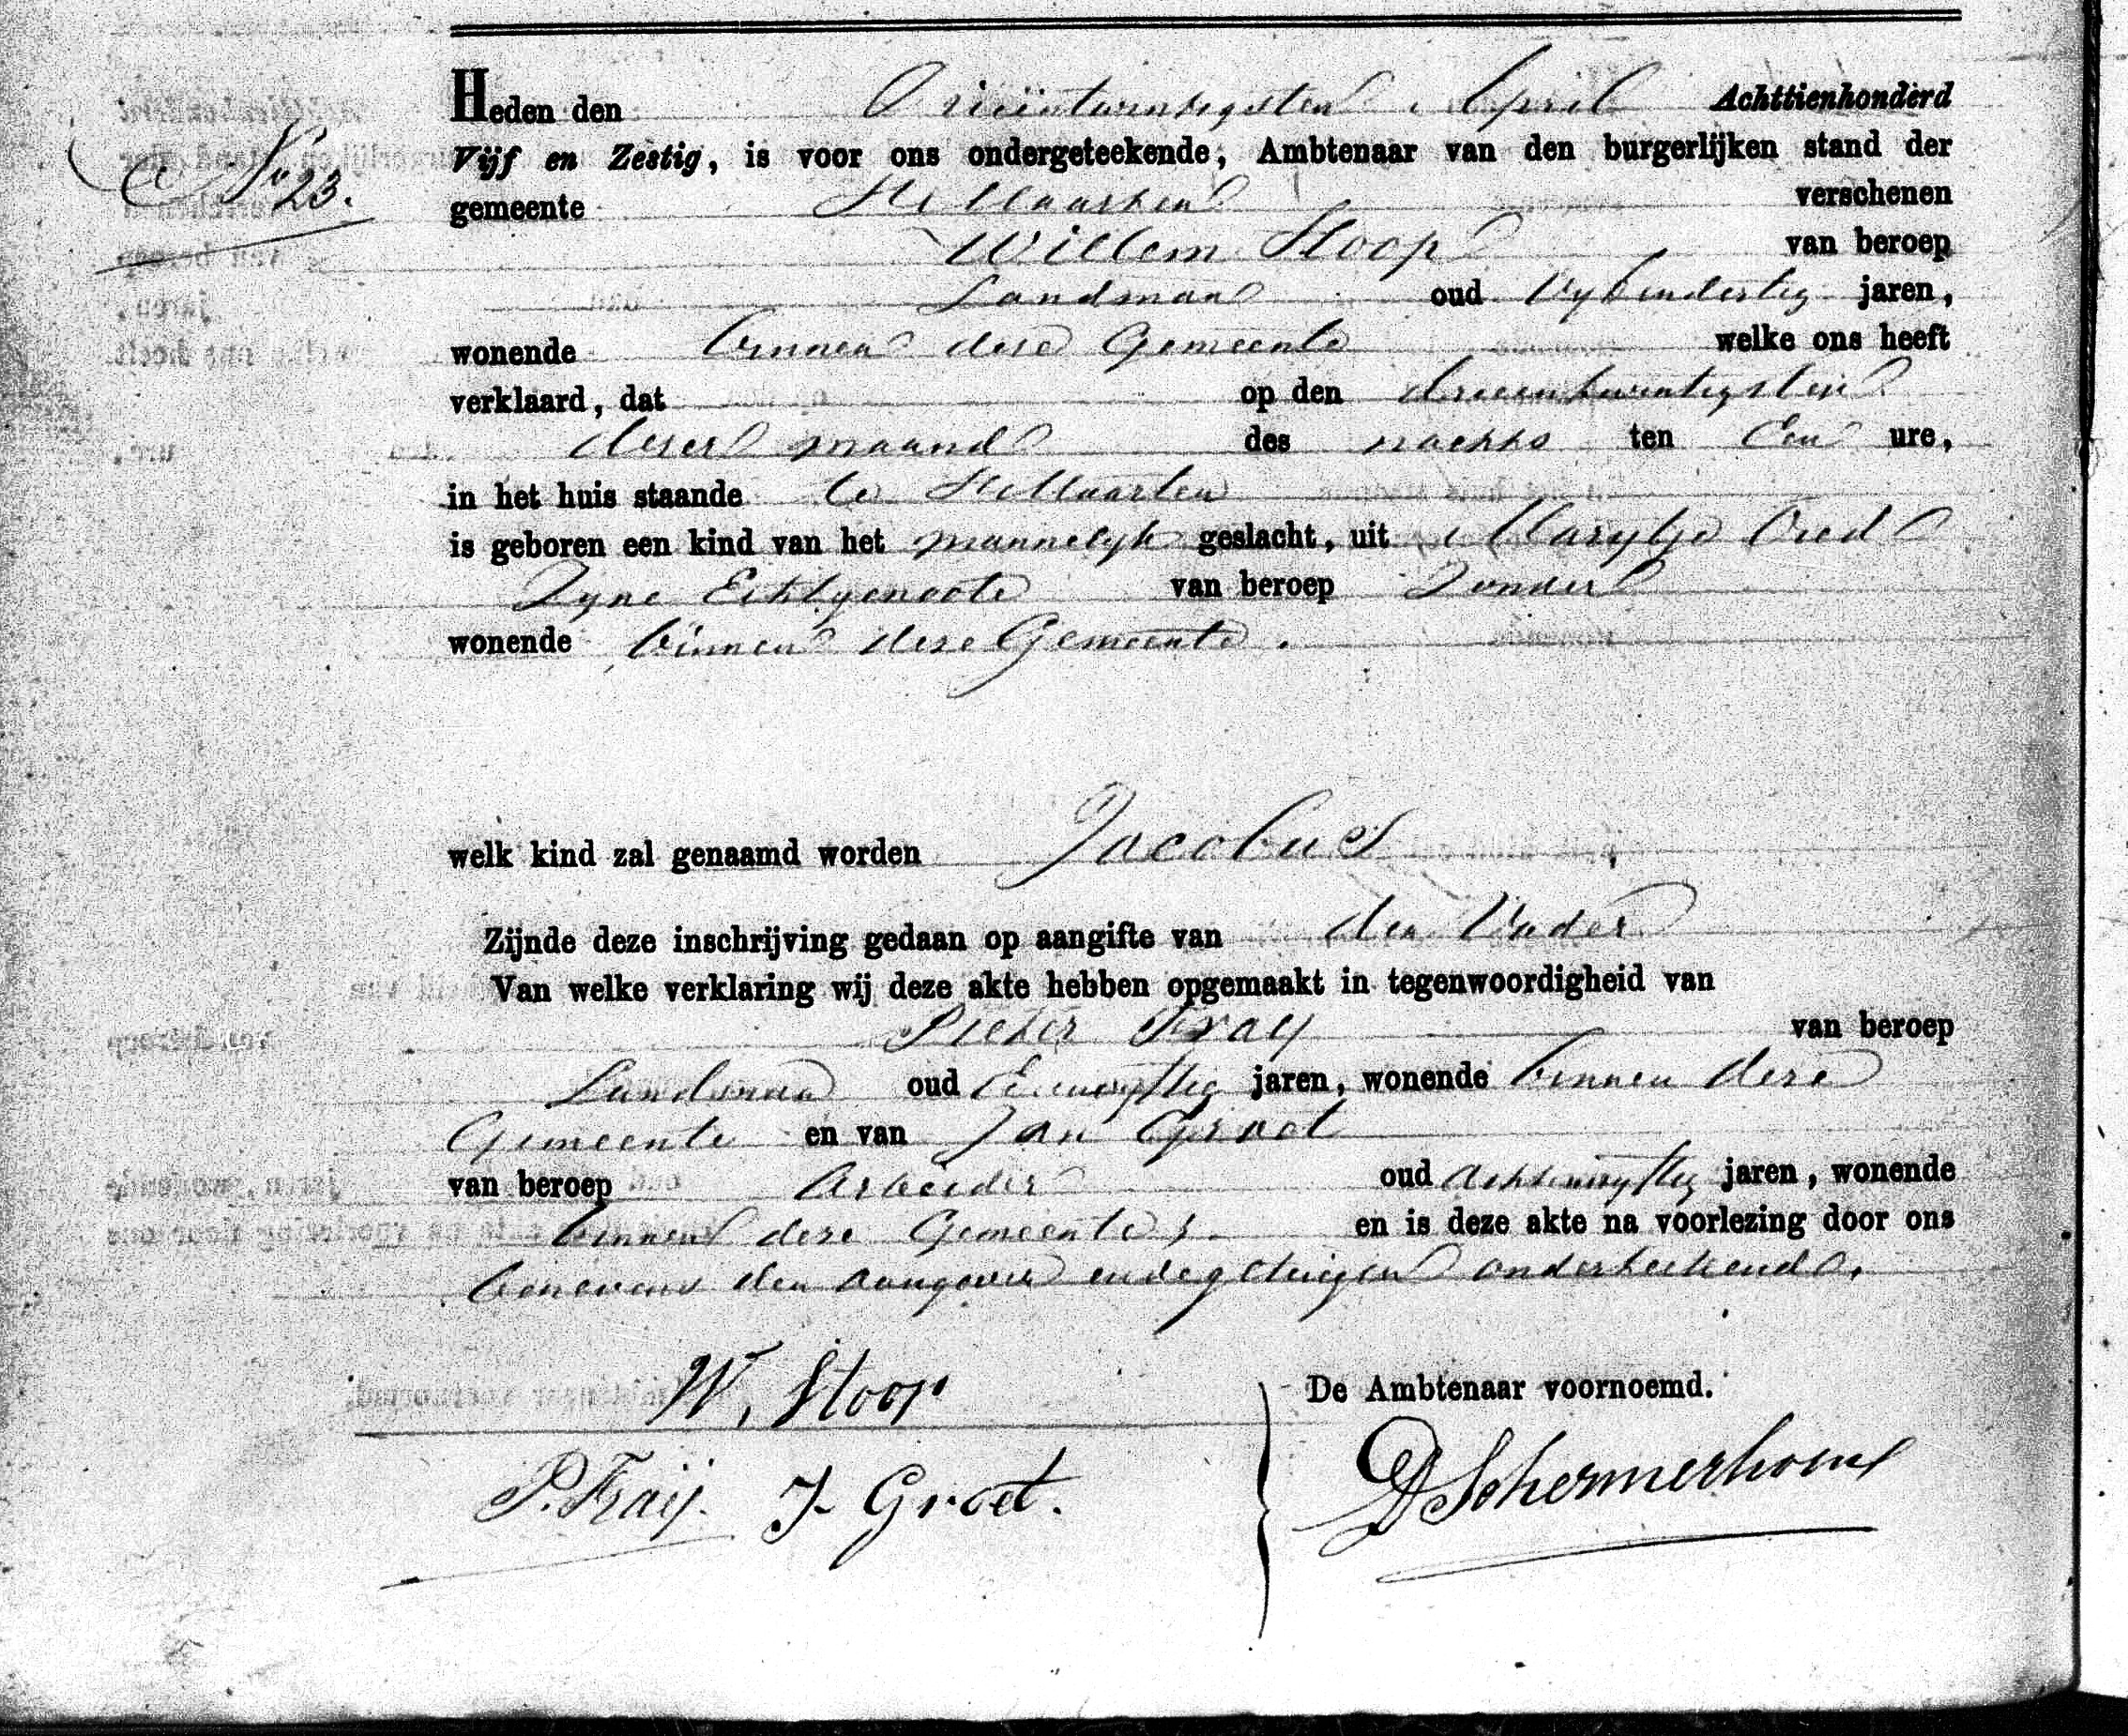 Heden den Drieëntwintigsten April Achttienhonderd
No 23.
Vijf en Zestig, is voor ons ondergeteekende, Ambtenaar van den burgerlijken stand der
gemeente St Maarten verschenen
Willem Stoop van beroep
Landman oud Vyfendertig jaren,
wonende binnen deze Gemeente welke ons heeft
verklaard, dat op den drieentwintigsten
dezer maand des nachts ten Een ure,
in het huis staande te St Maarten
is geboren een kind van het mannelyk geslacht, uit Marytje
Zyne Echtgenoote van beroep Zonder
wonende binnen deze Gemeente.
welk kind zal genaamd worden Jacobus,
Zijnde deze inschrijving gedaan op aangifte van den Vader
Van welke verklaring wij deze akte hebben opgemaakt in tegenwoordigheid van
Pieter Fraij van beroep
Landman oud jaren, wonende binnen deze
Gemeente en van Jan Groet
van beroep Arbeider oud Achtenvyftig jaren, wonende
binnen deze Gemeente, en is deze akte na voorlezing door ons
benevens den aangever en de getuigen onderteekend.
W. Stoop
De Ambtenaar voornoemd.
P. Fraij. J Groet.
D Schermerhorn